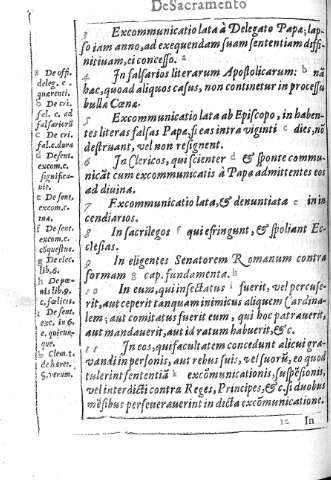 De Sacramento
3 Excommunicatio lata à Delegato Papa; lap-
so iam anno, ad exequendam suam sententiam deffi-
nitiuam, ei concesso. a
4 In falsarios literarum Apostolicarum: b nã
hac, quoad aliquos casus, non continetur in processu
bulla Cœna.
5 Excommunicatio lata ab Episcopo, in haben-
tes literas falsas Papa, si eas intra viginti c dies, nõ
destruant, vel non resignent.
6 In Clericos, qui scienter d & sponte commu-
nicãt cum excommunicatis à Papa admittentes eos
ad diuina.
7 Excommunicatio lata, & denuntiata e in in
cendiarios.
8 In sacrilegos f qui efringunt, & spoliant Ec
clesias.
9 In eligentes Senatorem Romanum contra
formam g cap. fundamenta. h
10 In eum, qui insectatus i fuerit, vel percusse-
rit, aut ceperit tanquam inimicus aliquem Cardina-
lem; aut comitatus fuerit eum, qui hoc patrauerit,
aut mandauerit, aut id ratum habuerit, & c.
11 In eos, qui facultatem concedunt alicui gra-
uandi in personis, aut rebus suis, vel suorũ, eo quod
tulerint sententiã k excõmunicationis, suspẽsionis,
vel interdicti contra Reges, Principes, & c. si duobus
mẽsibus perseuerauerint in dicta excõmunicatione.
12 In
a De offi.
deleg. c.
querenti.
b De cri.
fal. c. ad
falsariorũ
c De cri.
fal. c. dura
d De sent.
excom. c.
significa-
uit.
e De sent.
excom. c.
tua.
f De sent.
excom. c.
cõquestus.
g De elec.
lib. 6.
h De pœ-
nis lib. 6.
c. fœlicis.
i De sent.
exc. in 6.
c. quicun-
que.
Clem. 1.
de hæret.
§. verum.